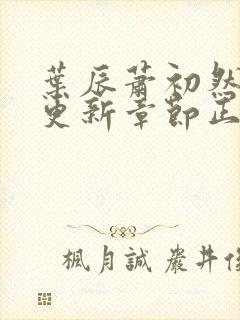 葉辰蕭初然
更新章節正
楓月誠嚴井俊